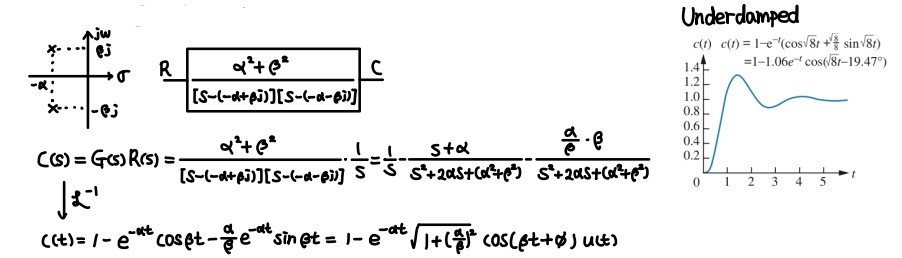 Underdamped
jω
βj
-α
σ
-βj
R
α²+β²
[S-(-α+βj)][S-(-α-βj)]
C
C(s) = G(s)R(s) = α²+β² / [S-(-α+βj)][S-(-α-βj)] · 1/S = 1/S - S+α / S²+2αS+(α²+β²) - α/β · β / S²+2αS+(α²+β²)
↓ ℒ⁻¹
C(t) = 1 - e^-αt cosβt - α/β e^-αt sinβt = 1 - e^-αt √1+(α/β)² cos(βt+φ) u(t)
c(t) c(t) = 1−e^−t(cos√8t + √8/8 sin√8t)
=1−1.06e^−t cos(√8t−19.47°)
1.4
1.2
1.0
0.8
0.6
0.4
0.2
0 1 2 3 4 5 t